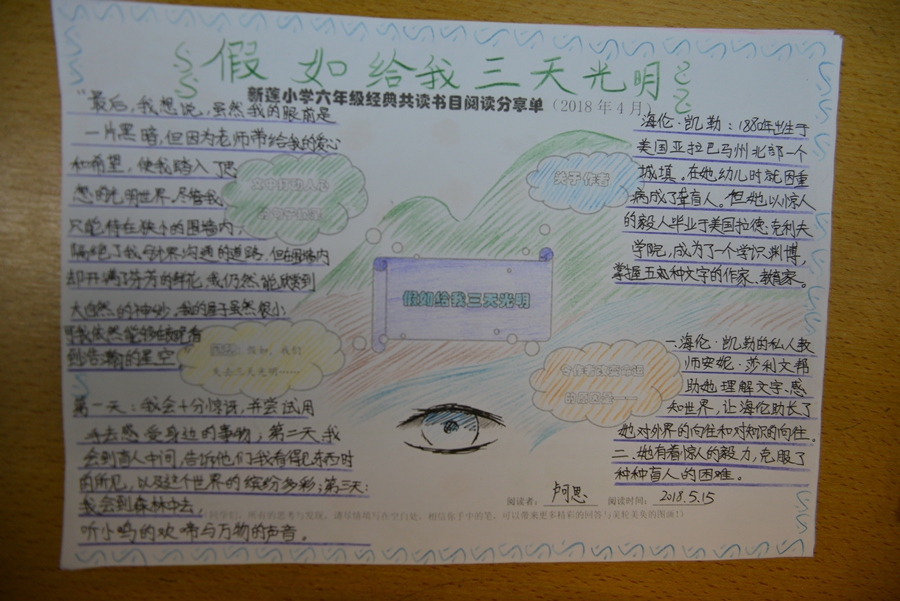 假如给我三天光明
新莲小学六年级经典共读书目阅读分享单（2018年4月）
“最后，我想说，虽然我的眼前是
一片黑暗，但因为老师带给我的爱心
和希望，使我踏入了思
想的光明世界。尽管我
只能待在狭小的围墙内，
隔绝了我与外界沟通的道路，但在围墙内
却开满了芬芳的鲜花，我仍然能欣赏到
大自然的神妙，我的屋子虽然很小
可我依然能够
的星空
文中打动人心
关于作者
海伦·凯勒：1880年出生于
美国亚拉巴马州北部一个
城镇。在她幼儿时就因重
病成了盲人。但她以惊人
的毅人毕业于美国拉德·克利夫
学院，成为了一个学识渊博，
掌握五种文字的作家、教育家。
假如给我三天光明
假如，我们
失去三天光明……
第一天：我会十分惊讶，并尝试用
手去感受身边的事物；第二天，我
会到盲人中间，告诉他们我有得见东西时
的所见，以及这个世界的缤纷多彩；第三天：
我会到森林中去，
听小鸣的欢啼与万物的声音。
令作者改变命运
的原因是——
一、海伦·凯勒的私人教
师安妮·莎利文帮
助她理解文字、感
知世界，让海伦助长了
她对外界的向往和对知识的向往。
二、她有着惊人的毅力，克服了
种种盲人的困难。
阅读者：卢思 阅读时间：2018.5.15
（同学们，所有的思考与发现，请尽情填写在空白处，相信你手中的笔，可以带来更多精彩的回答与美轮美奂的图画！）